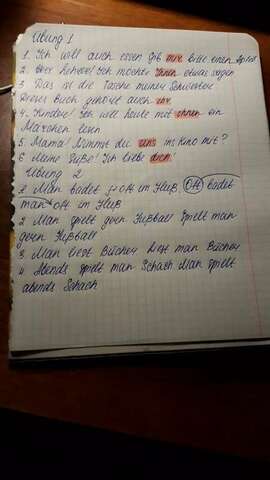 Übung 1
1. Ich will auch essen gib mir bitte einen Apfel
2. Herr Lehrer! Ich möchte Ihnen etwas sagen
3 Das ist die Tasche meiner Schwester
Dieses Buch gehört auch ihr.
4. Kinder! Ich will heute mit ihnen ein
Märchen lesen
5. Mama! Nimmst du uns ins Kino mit?
6 Meine Süße! Ich liebe dich.
Übung 2
1 Man badet oft im Fluß. Oft badet
man oft im Fluß
2 Man spielt gern Fußball Spielt man
gern Fußball
3 Man liest Bücher Liest man Bücher
4 Abends spielt man Schach Man spielt
abends Schach